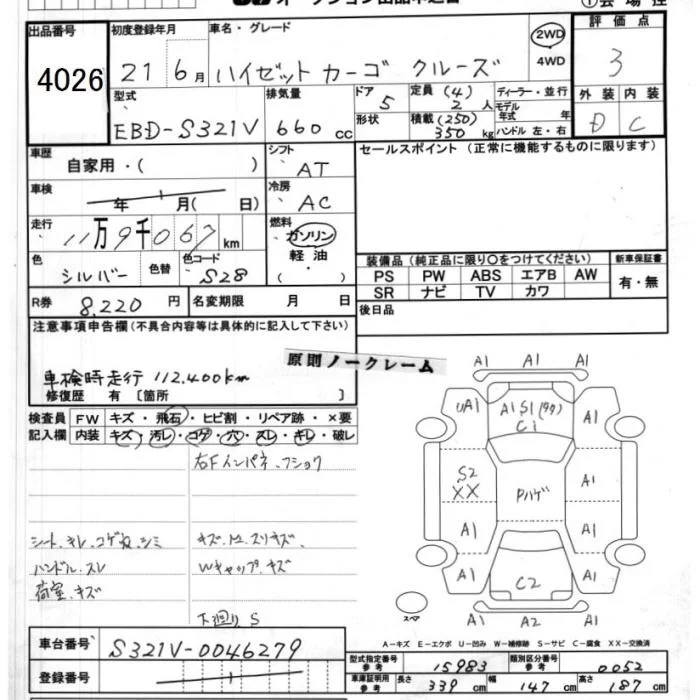 出品番号
4026
初度登録年月
21 6月
車名・グレード
ハイゼット カーゴ クルーズ
2WD
4WD
評価点
3
外装 内装
D C
型式
EBD-S321V
排気量
660 cc
ドア
5
形状
定員 (4)
2人
積載 (250)
350 kg
ディーラー・並行
モデル年式 年
ハンドル 左・右
車歴
自家用・( )
シフト
AT
セールスポイント (正常に機能するものに限ります)
車検
年 月( 日)
冷房
AC
走行
11万9千067km
燃料
ガソリン
軽油
色
シルバー
色替
色コード
S28
装備品(純正品に限り○をつけてください)
新車保証書
PS PW ABS エアB AW
SR ナビ TV カワ
有・無
R券
8,220円
名変期限 月 日
後日品
注意事項申告欄(不具合内容等は具体的に記入して下さい)
原則ノークレーム
車検時走行 112,400km
修復歴 有 [箇所 ]
検査員記入欄
FW キズ・飛石・ヒビ割・リペア跡・×要
内装 キズ・汚レ・コゲ・穴・スレ・キレ・破レ
右Fインパネ、フショク
シート、キレ、コゲ穴、シミ
ハンドル、スレ
荷室、キズ
Wキャップ、キズ
下廻り S
A1 A1 A1
UA1
A1 S1(タタ)
C1
A1
S2
XX
Pハゲ
A1
A1 A1
A1 C2 A1
A1 A2 A1
スペア
A-キズ E-エクボ U-凹み W-補修跡 S-サビ C-腐食 XX-交換済
車台番号
S321V-0046279
登録番号
型式指定番号 参考
15983
類別区分番号 参考
0052
車庫証明用 参考
長さ 339cm 幅 147cm 高さ 187cm